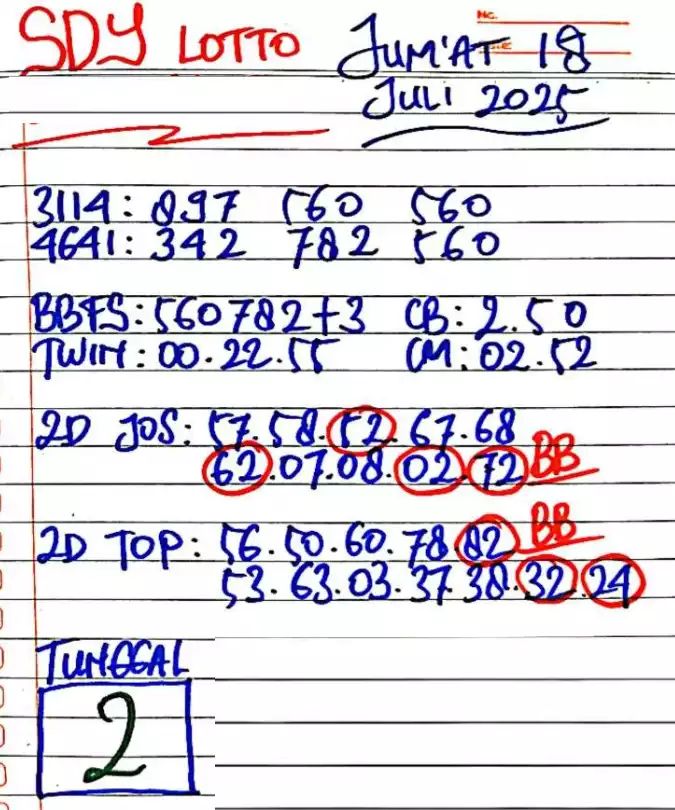 SDY LOTTO
JUM'AT 18
JULI 2025
3114: 897 560 560
4641: 342 782 560
BBFS: 560782+3 CB: 2.50
TWIN: 00.22.55 CM: 02.52
2D JOS: 57.58.52.67.68
62.07.08.02.72 BB
2D TOP: 56.50.60.78.82 BB
53.63.03.37.38.32.24
TUNGGAL
2